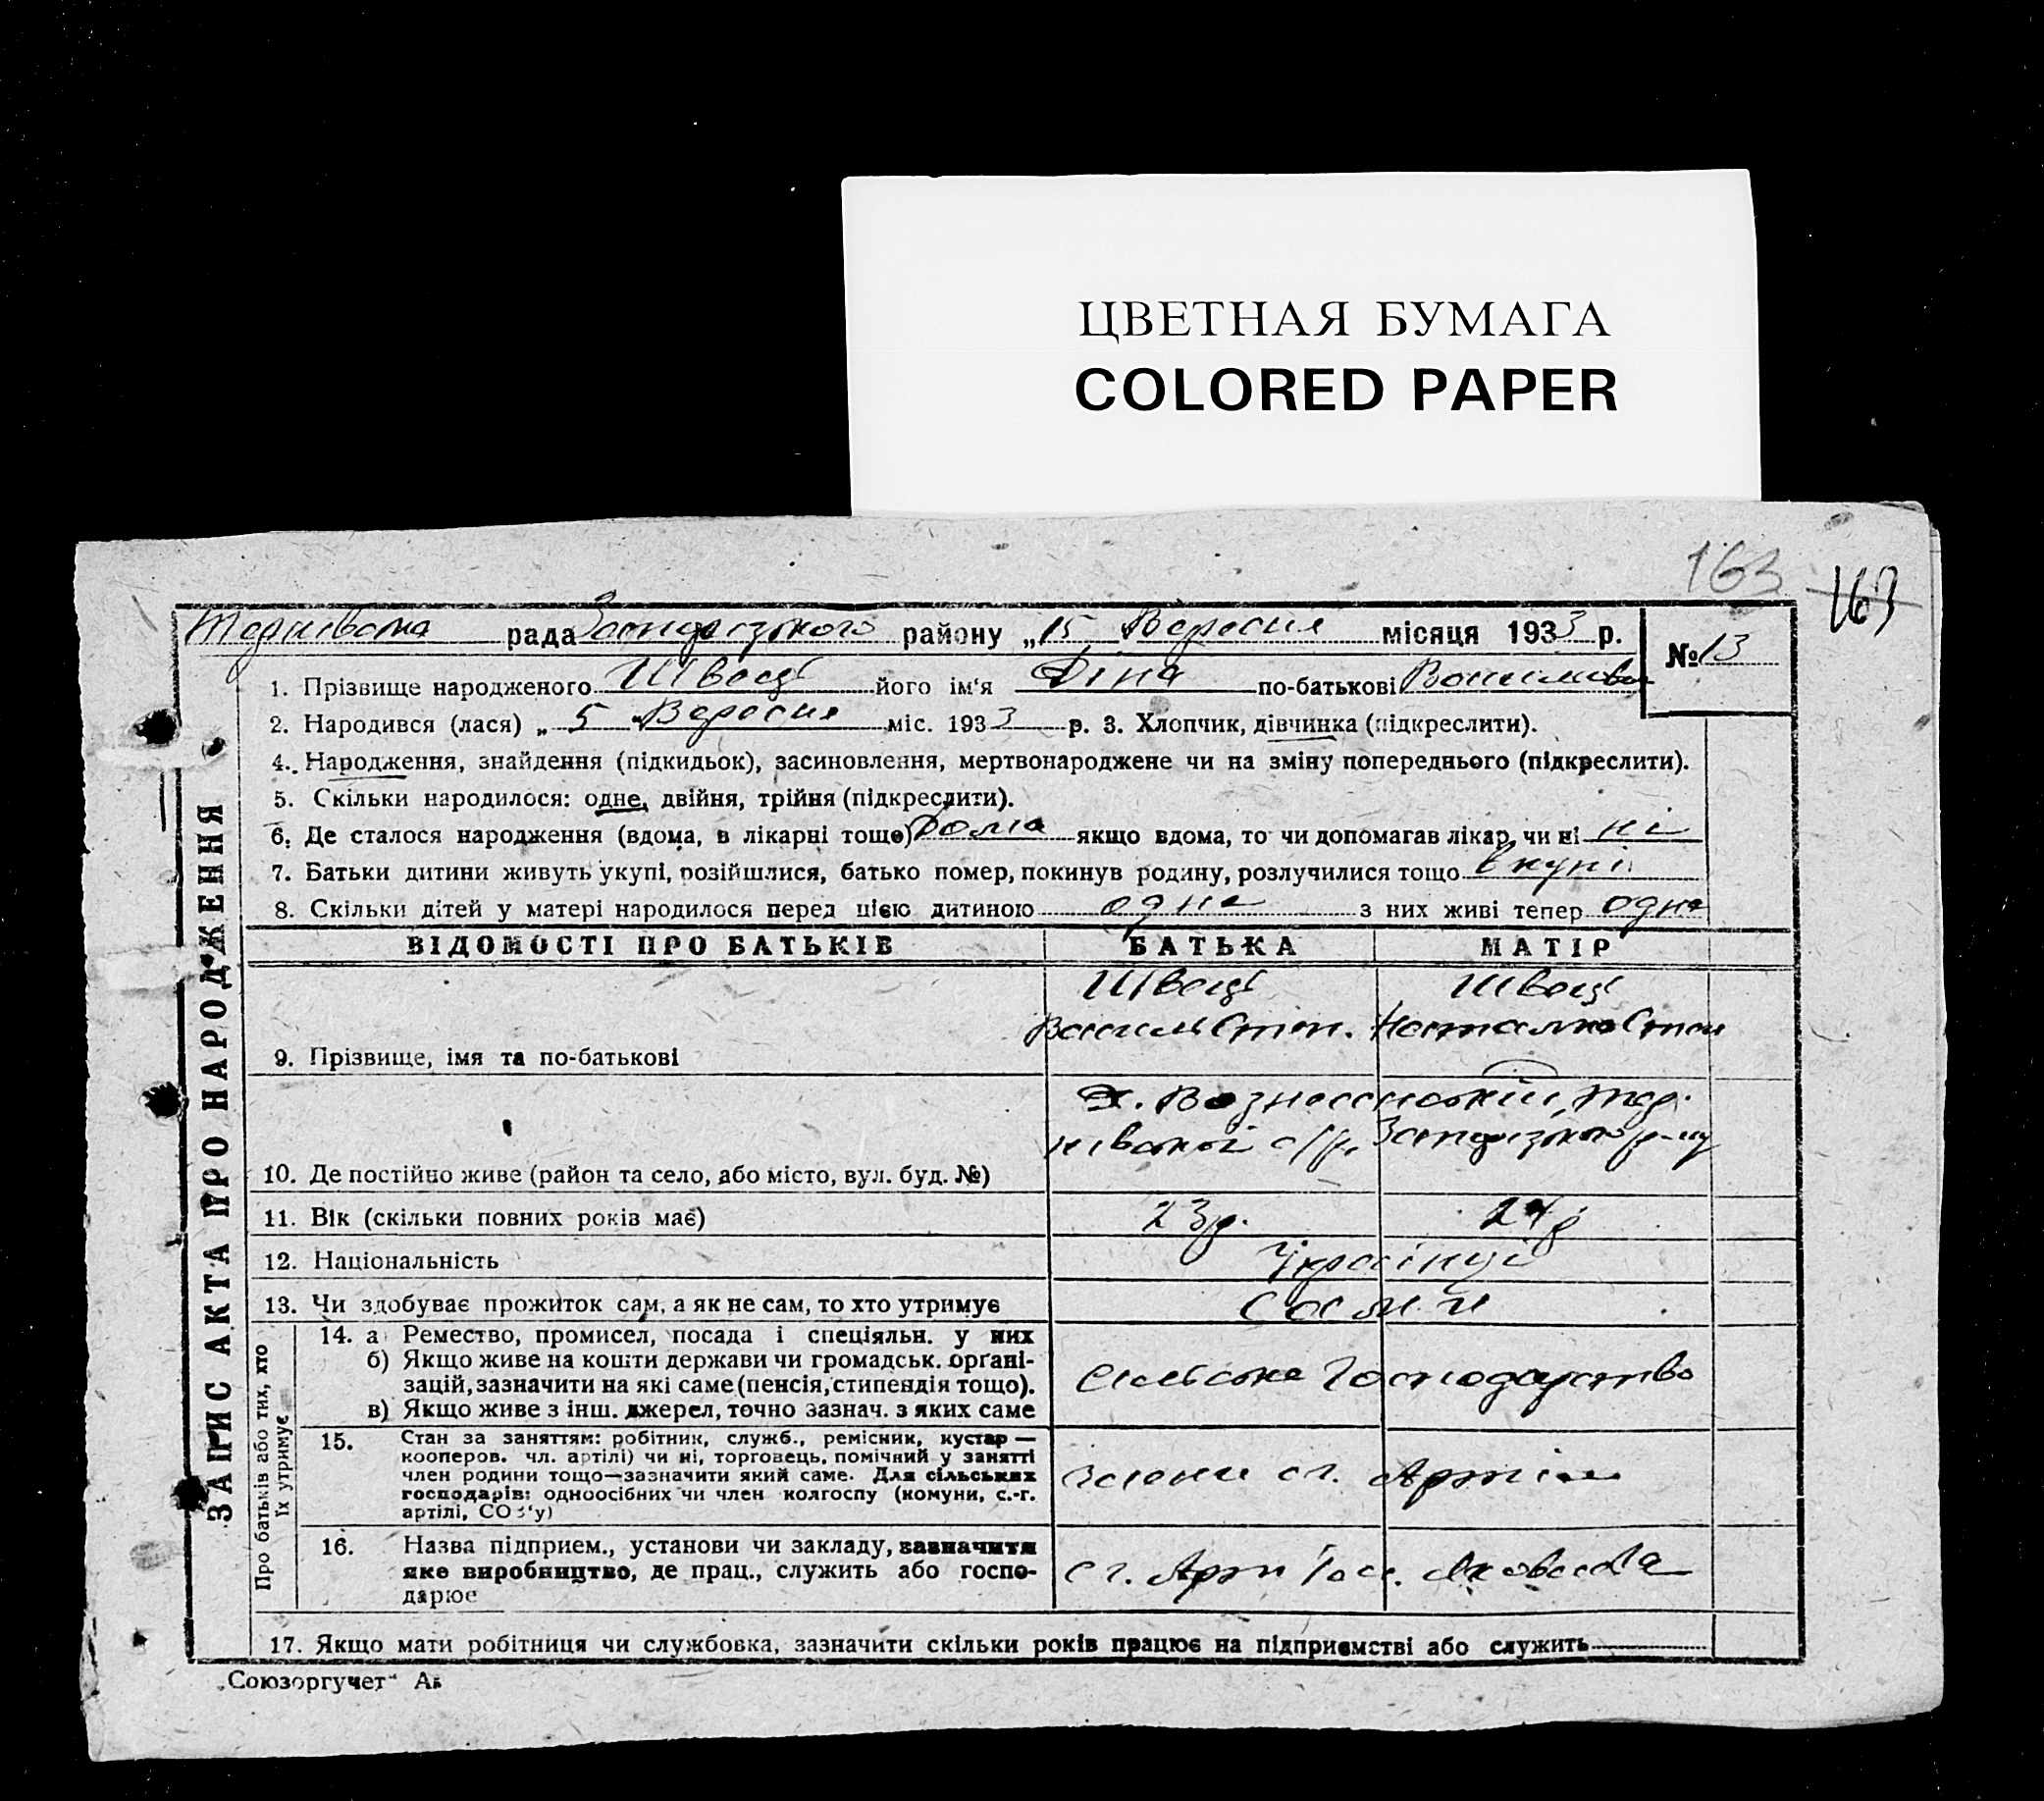 ЦВЕТНАЯ БУМАГА
COLORED PAPER
163 163
рада Запорізького району „15 Вересня місяця 1933 р.
№ 13
1. Прізвище народженого Швець його ім‘я Діна по-батькові
2. Народився (лася) „ 5 „ Вересня міс. 1933 р. 3. Хлопчик, дівчинка (підкреслити).
4. Народження, знайдення (підкидьок), засиновлення, мертвонароджене чи на зміну попереднього (підкреслити).
5. Скільки народилося: одне, двійня, трійня (підкреслити).
6. Де сталося народження (вдома, в лікарні тощо) дома якщо вдома, то чи допомагав лікар, чи ні ні
7. Батьки дитини живуть укупі, розійшлися, батько помер, покинув родину, розлучилися тощо вкупі
8. Скільки дітей у матері народилося перед цією дитиною одна з них живі тепер одна
ВІДОМОСТІ ПРО БАТЬКІВ БАТЬКА МАТІР
Швець Швець
Василь Степ. Наталка Степ
9. Прізвище, імя та по-батькові
Х. Вознесенський, Тер-
нівської с/р, Запорізького р-ну
10. Де постійно живе (район та село, або місто, вул. буд. №)
11. Вік (скільки повних років має) 23 р. 24 р
12. Національність Українці
13. Чи здобуває прожиток сам, а як не сам, то хто утримує сами
Про батьків або тих, хто їх утримує
14. а Ремество, промисел, посада і спеціяльн. у них
б) Якщо живе на кошти держави чи громадськ. органі-
зацій, зазначити на які саме (пенсія, стипендія тощо).
в) Якщо живе з інш. джерел, точно зазнач. з яких саме
сільське Господарство
15. Стан за заняттям: робітник, служб., ремісник, кустар —
кооперов. чл. артілі) чи ні, торговець, помічний у занятті
член родини тощо—зазначити який саме. Для сільських
господарів: одноосібних чи член колгоспу (комуни, с.-г.
артілі, СОЗ‘у)
сг. Артіли
16. Назва підприєм., установи чи закладу, зазначити
яке виробництво, де прац., служить або госпо-
дарює
сг. Арт
17. Якщо мати робітниця чи службовка, зазначити скільки років працює на підприємстві або служить
ЗАПИС АКТА ПРО НАРОДЖЕННЯ
„Союзоргучет“